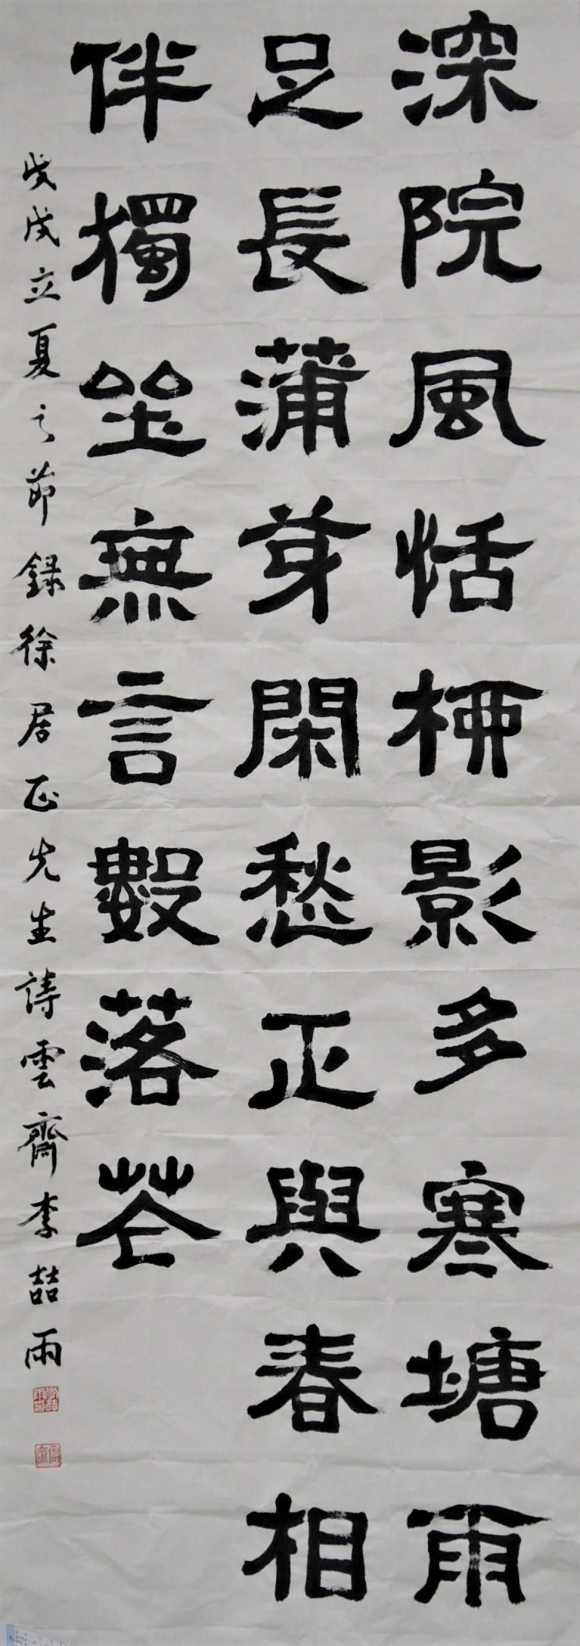 深院風恬桺影多寒塘雨
足長蒲芽閑愁正與春相
伴獨坐無言數落花
戊戌立夏之節錄徐居正先生詩雲齋李喆雨